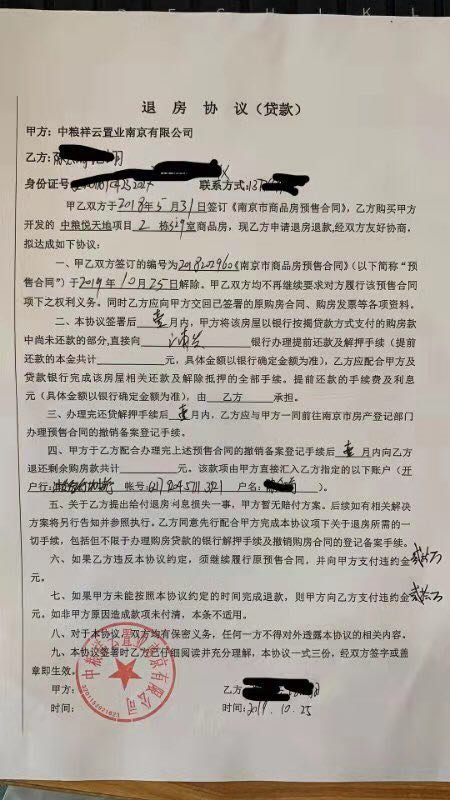 退 房 协 议（贷款）
甲方：中粮祥云置业南京有限公司
乙方：
身份证号 联系方式：
甲乙双方于2018年5月31日签订《南京市商品房预售合同》，乙方购买甲方
开发的 中粮悦天地项目 2 栋519室商品房，现乙方申请退房退款，经双方友好协商，
拟达成如下协议：
一、甲乙双方签订的编号为 《南京市商品房预售合同》（以下简称“预
售合同”）于2019年10月25日解除。甲乙双方均不再继续要求对方履行该预售合同
项下之权利义务。同时乙方应向甲方交回已签署的原购房合同、购房发票等各项资料。
二、本协议签署后 壹 月内，甲方将该房屋以银行按揭贷款方式支付的购房款
中尚未还款的部分，直接向 银行办理提前还款及解押手续（提前
还款的本金共计 元，具体金额以银行确定金额为准），乙方应配合甲方及
贷款银行完成该房屋相关还款及解除抵押的全部手续。提前还款的手续费及利息
元（具体金额以银行确定金额为准），由 乙方 承担。
三、办理完还贷解押手续后 壹 月内，乙方应与甲方一同前往南京市房产登记部门
办理预售合同的撤销备案登记手续。
四、甲方于乙方配合办理完上述预售合同的撤销备案登记手续后 壹 月内向乙方
退还剩余购房款共计 元。该款项由甲方直接汇入乙方指定的以下账户（开
户行： 账号： 户名： ）。
五、关于乙方提出给付退房利息损失一事，甲方暂无赔付方案。后续如有相关解决
方案将另行告知并参照执行。乙方同意先行配合甲方完成本协议项下关于退房所需的一
切手续，包括但不限于办理购房贷款的银行解押手续及撤销购房合同的登记备案手续。
六、如果乙方违反本协议约定，须继续履行原预售合同，并向甲方支付违约金 贰拾万
元。
七、如果甲方未能按照本协议约定的时间完成退款，则甲方向乙方支付违约金 贰拾万
元。如非甲方原因造成款项未付清，本条不适用。
八、对于本协议，双方均有保密义务，任何一方不得对外透露本协议的相关内容。
九、本协议签署时乙方已仔细阅读并充分理解，本协议一式三份，经双方签字或盖
章即生效。
甲方： 乙方：
时间： 时间：2019.10.25
中粮祥云置业南京有限公司